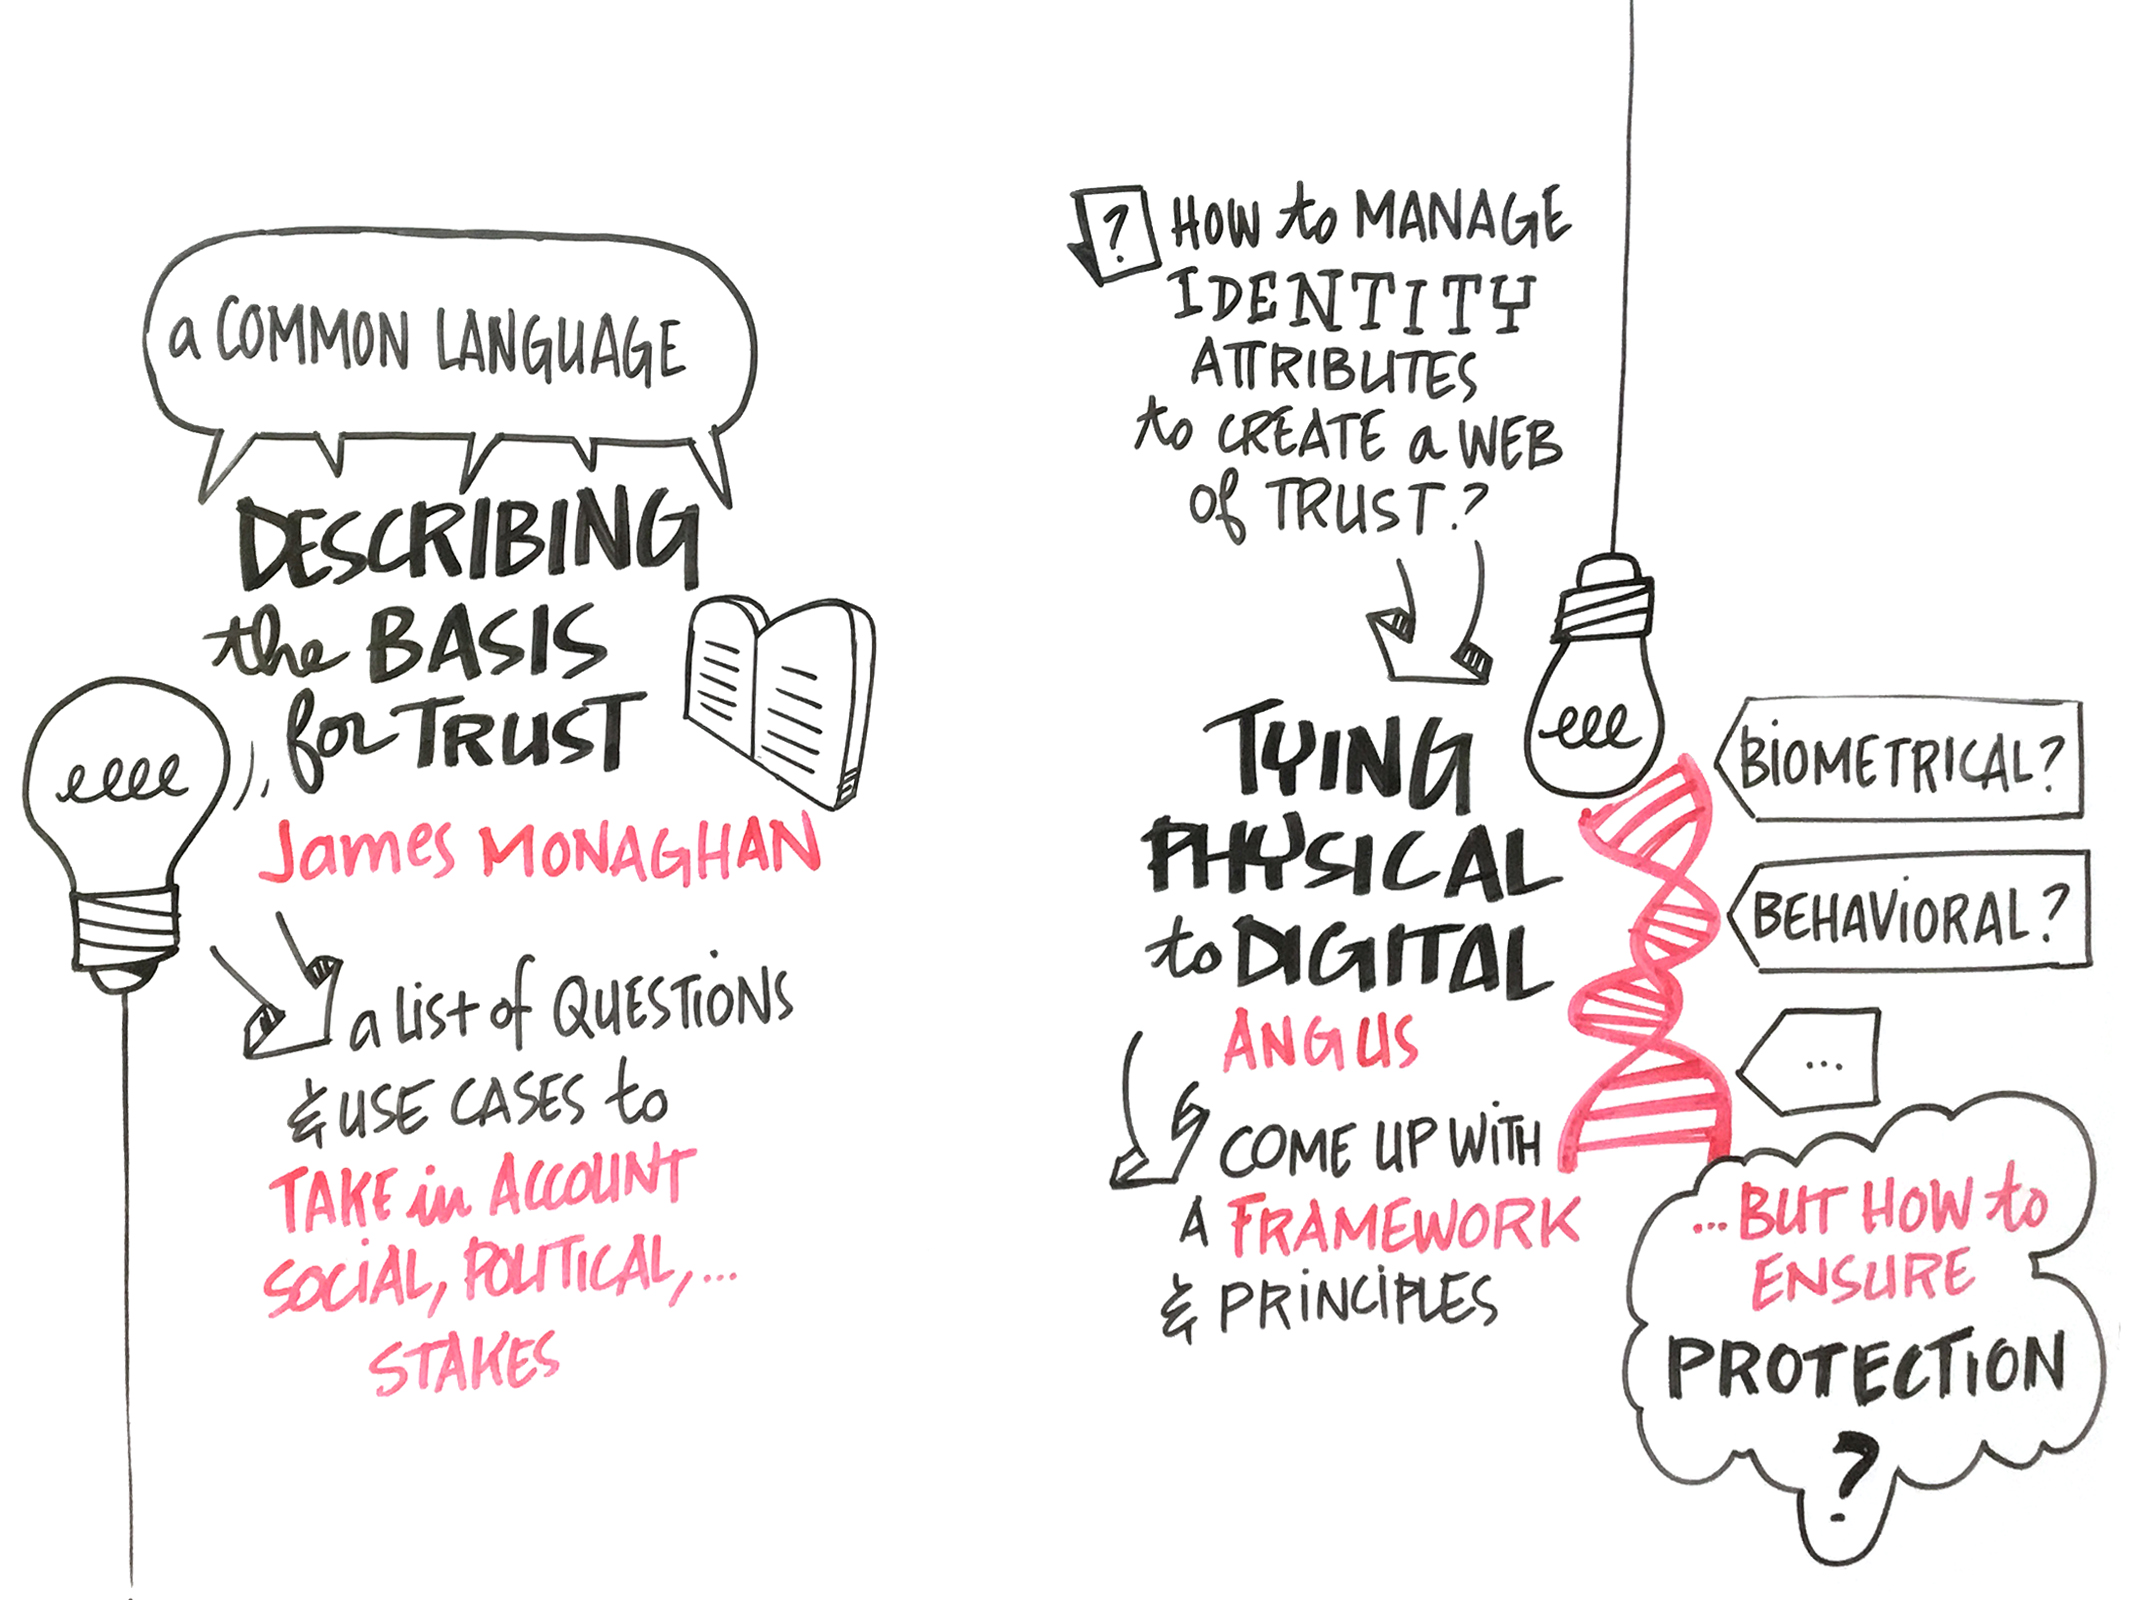 a COMMON LANGUAGE
DESCRIBING
the BASIS
for TRUST
James MONAGHAN
a list of QUESTIONS
& USE CASES to
TAKE in ACCOUNT
SOCIAL, POLITICAL,...
STAKES
? HOW to MANAGE
IDENTITY
ATTRIBUTES
to CREATE a WEB
of TRUST?
TYING
PHYSICAL
to DIGITAL
ANGUS
COME UP WITH
A FRAMEWORK
& PRINCIPLES
BIOMETRICAL?
BEHAVIORAL?
...
...BUT HOW to
ENSURE
PROTECTION
?